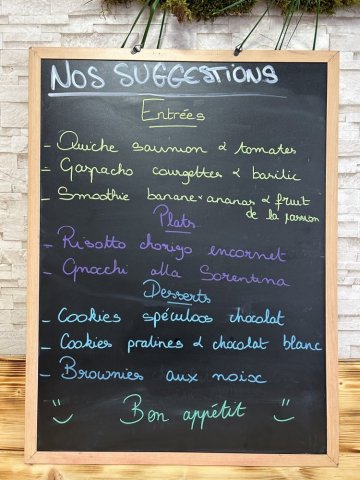 NOS SUGGESTIONS
Entrées
- Quiche saumon & tomates
- Gaspacho courgettes & basilic
- Smoothie banane, ananas & fruit
de la passion
Plats
- Risotto chorizo encornet
- Gnocchi alla Sorentina
Desserts
- Cookies spéculoos chocolat
- Cookies pralines & chocolat blanc
- Brownies aux noix
Bon appétit